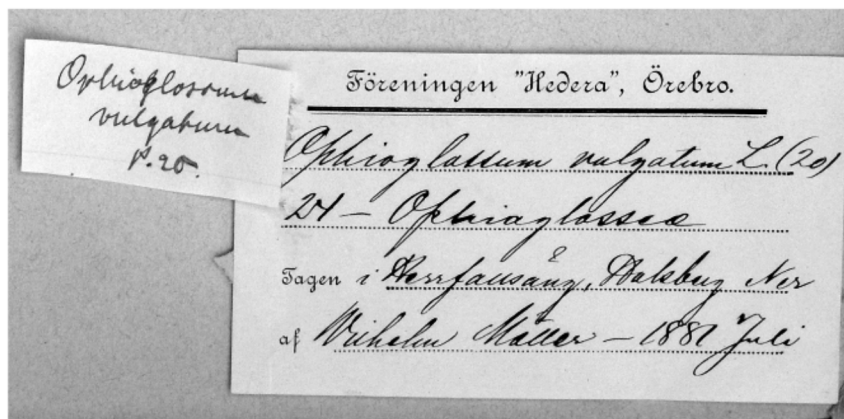 Ophioglossum
vulgatum
P. 20.
Föreningen "Hedera", Örebro.
Ophioglossum vulgatum L. (20)
24 — Ophioglosseæ
Tagen i Hallsberg Ner
af Wilhelm Möller — 1881 Juli